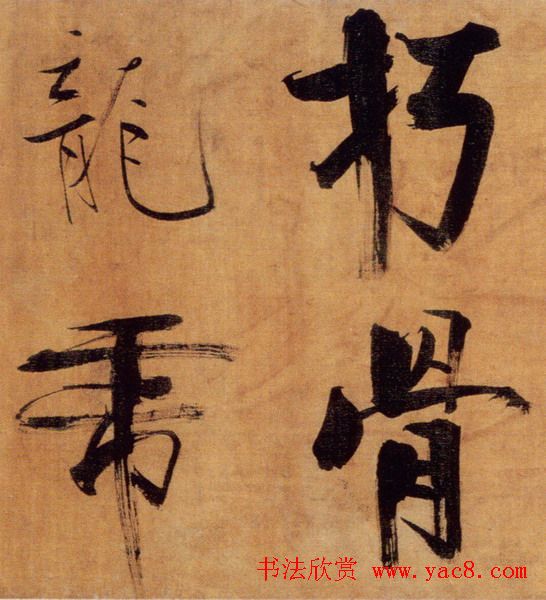 朽骨
龍虎
书法欣赏 www.yac8.com